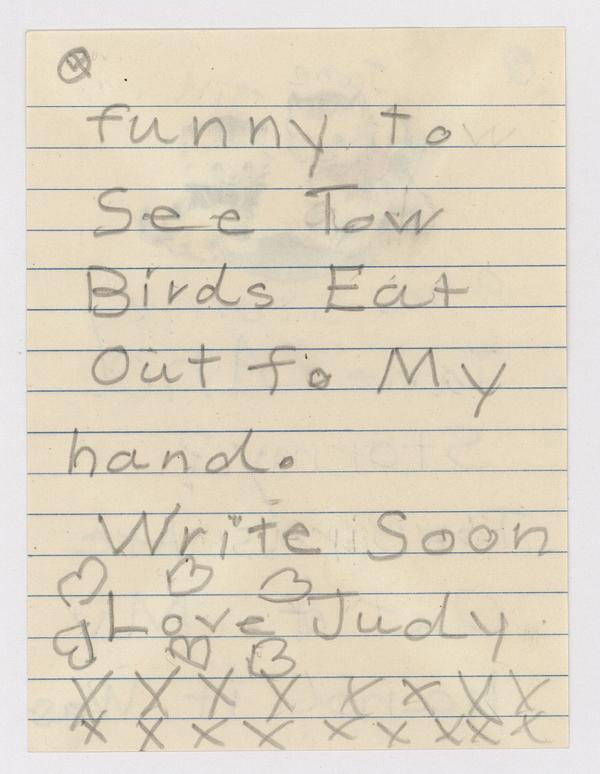 funny to
See Tow
Birds Eat
Out fo My
hand.
Write Soon
Love Judy.
X X X X X X X X
X X X X X X X X X